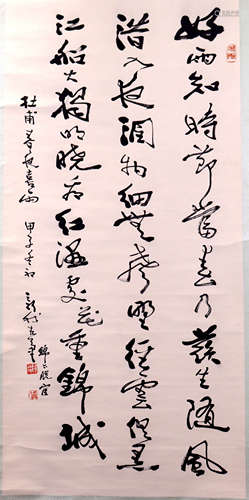 好雨知時節當春乃發生隨風
潛入夜潤物細無聲野徑雲俱黑
江船火獨明曉看紅濕處花重錦城
杜甫春夜喜雨 甲子
錦下脫官